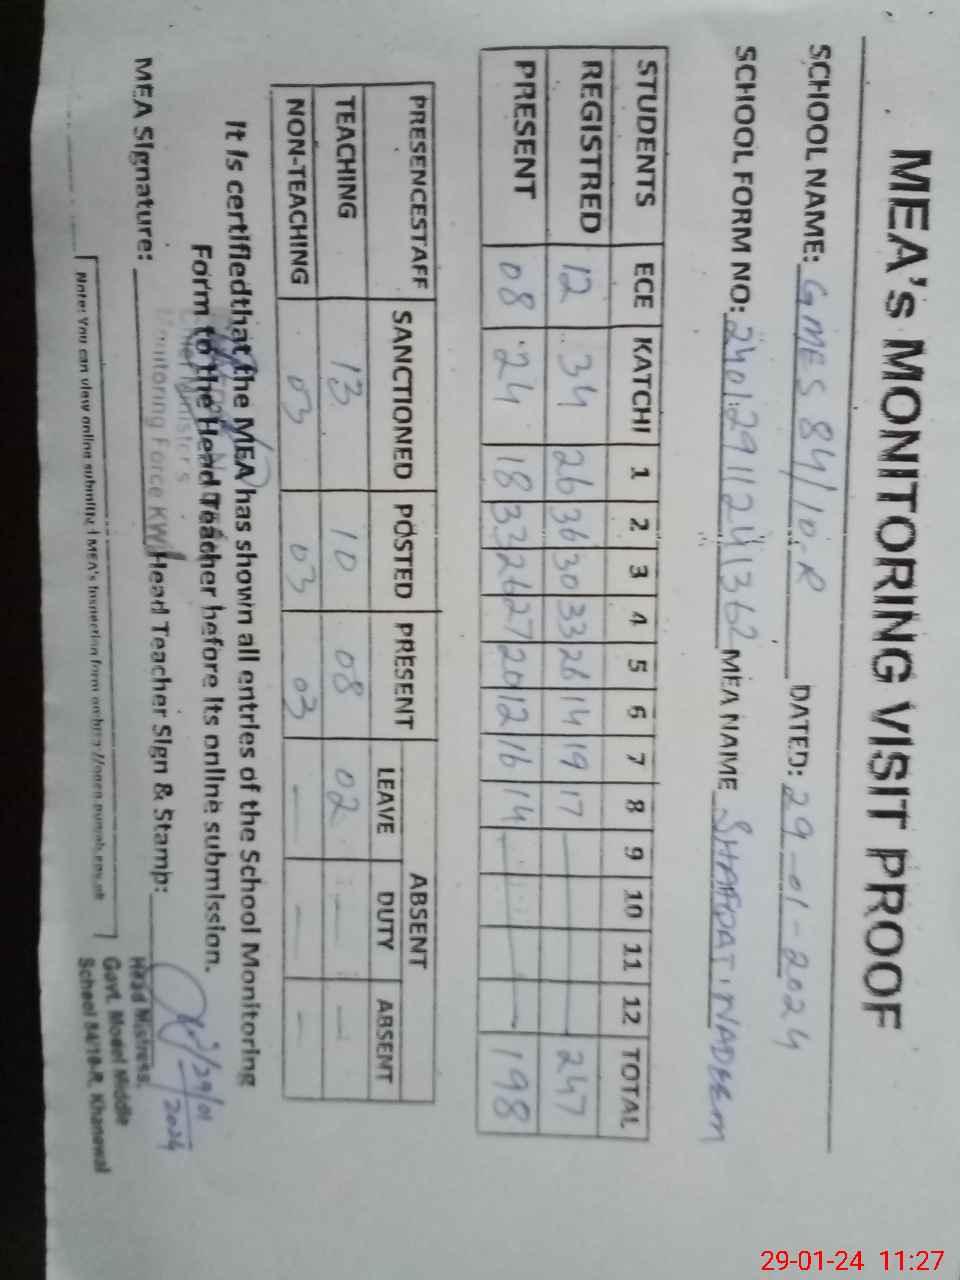 MEA's MONITORING VISIT PROOF
SCHOOL NAME: GMES 84/10.R DATED: 29-01-2024
SCHOOL FORM NO: 24012911241362 MEA NAME SHAFQAT NADEEM
STUDENTS ECE KATCHI 1 2 3 4 5 6 7 8 9 10 11 12 TOTAL
REGISTRED 12 34 26 36 30 33 26 14 19 17 247
PRESENT 08 24 18 33 26 27 20 12 16 14 198
PRESENCESTAFF SANCTIONED POSTED PRESENT ABSENT
LEAVE DUTY ABSENT
TEACHING 13 10 08 02 - -
NON-TEACHING 03 03 03 - - -
It is certifiedthat the MEA has shown all entries of the School Monitoring
Form to the Head Teacher before its online submission.
Ministers
Monitoring Force KWL
MEA Signature: Head Teacher Sign & Stamp:
29/01
2024
Head Mistress.
Govt. Model Middle
School 84/10-R, Khanewal
Note: You can view online submitted MEA's Inspection form on http://open.punjab.gov.pk
29-01-24 11:27